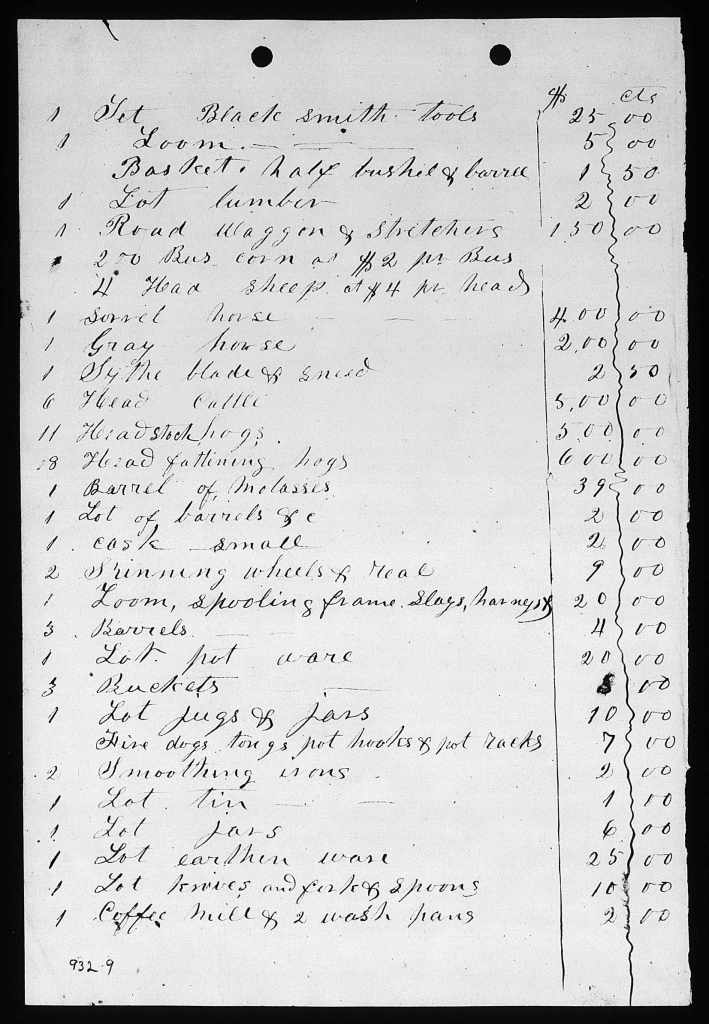 $ cts
1 Set Black smith tools 25 00
1 Loom 5 00
Basket. half bushel & barrel 1 50
1 Lot lumber 2 00
1 Road Waggon & Stretchers 150 00
200 Bus corn at $2 pr Bus
4 Head sheep at $4 pr head
1 Sorrel horse 400 00
1 Gray horse 200 00
1 Sythe blade & sneed 2 50
6 Head Cattle 500 00
11 Head stock hogs 500 00
18 Head fattining hogs 600 00
1 Barrel of Molasses 39 00
1 Lot of barrels &c 2 00
1 cask small 2 00
2 Spinning wheels & real 9 00
1 Loom, spooling frame. Slays, harness & 20 00
3 Barrels 4 00
1 Lot pot ware 20 00
3 Buckets 8 00
1 Lot jugs & jars 10 00
Fire dogs tongs pot hooks & pot racks 7 00
2 Smoothing irons 2 00
1 Lot tin 1 00
1 Lot jars 6 00
1 Lot earthen ware 25 00
1 Lot knives and fork & spoons 10 00
1 Coffee mill & 2 wash pans 2 00
932-9